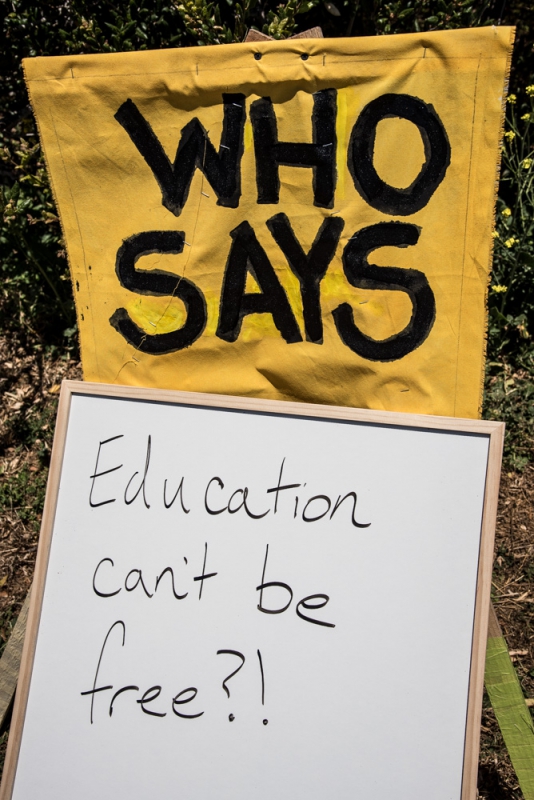 WHO
SAYS
Education
can't be
free?!